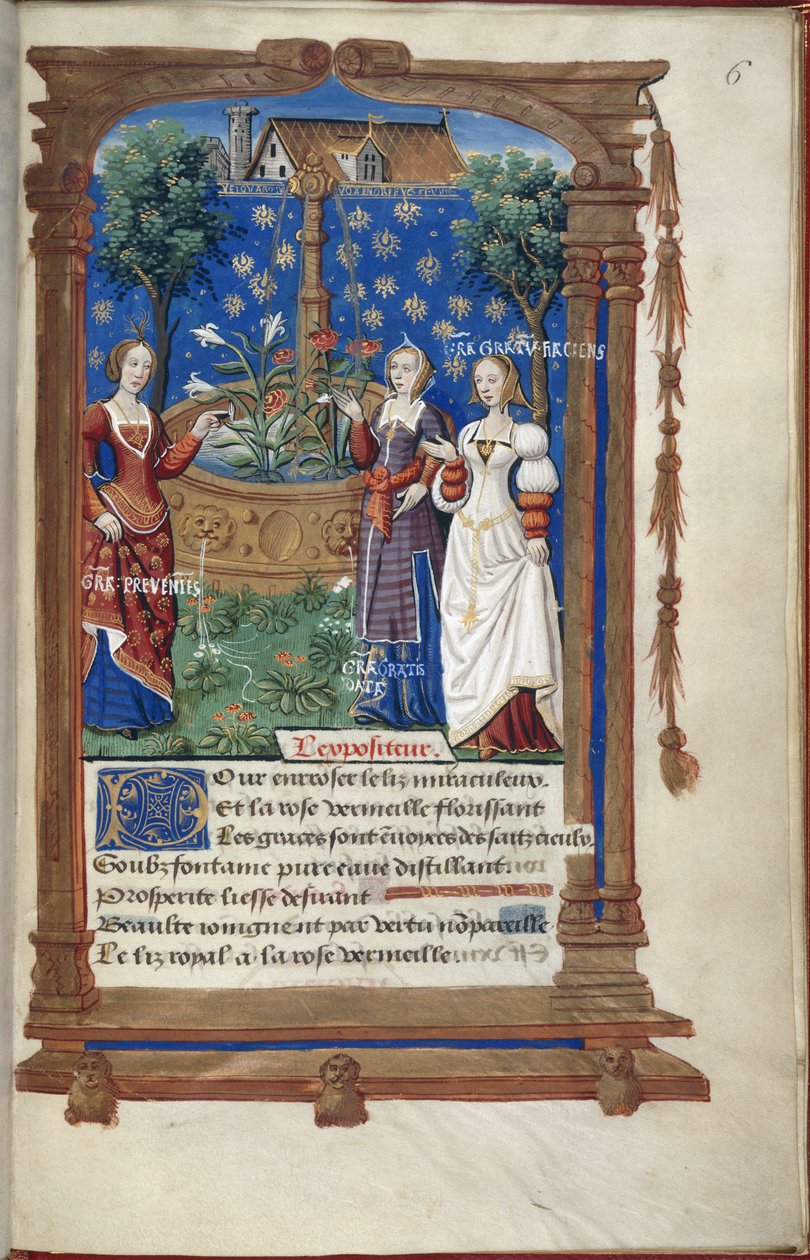 6
G̃RA GRATŨ FACIENS
G̃RA: PREVENIẼS
G̃RA GRATIS
DATA
Lexpositeur.
Pour enrroser le liz miraculeux.
Et la rose vermeille florissant
Les graces sont ẽnvoyees des saitz cieulx
Soubz fontaine pure eaue distillant
Prosperite liesse desirant
Beaulte ioingnent par vertu nõpareille
Le liz royal a la rose vermeille.